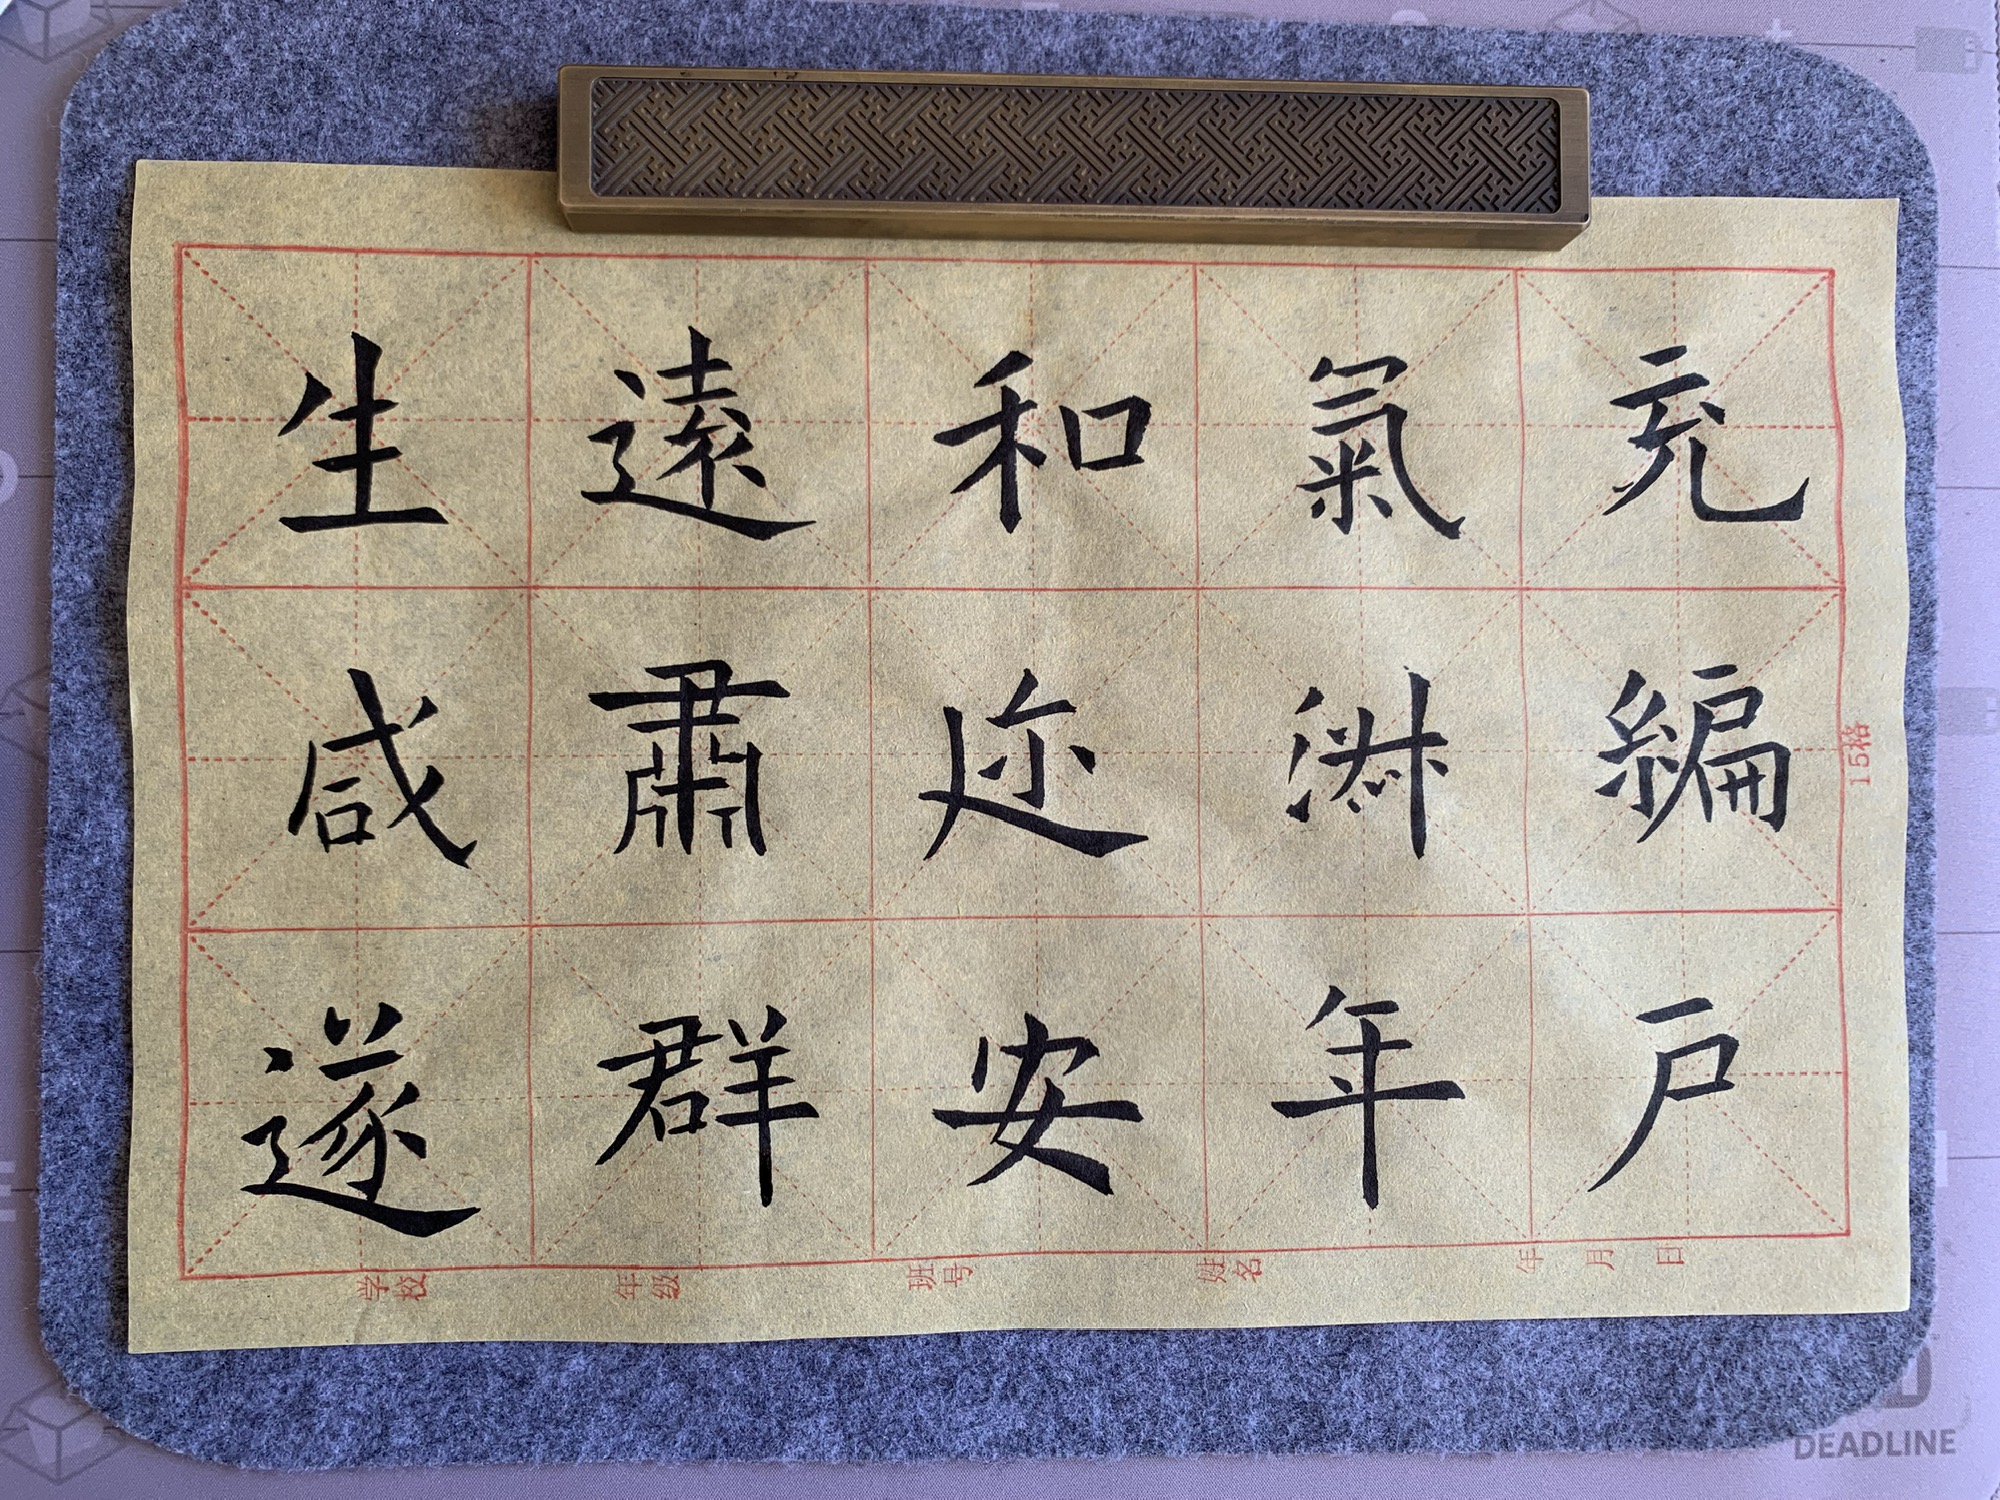 充編戶
氣淑年
和迩安
遠肅群
生咸遂
15格
学校 年级 班号 姓名 年 月 日
DEADLINE